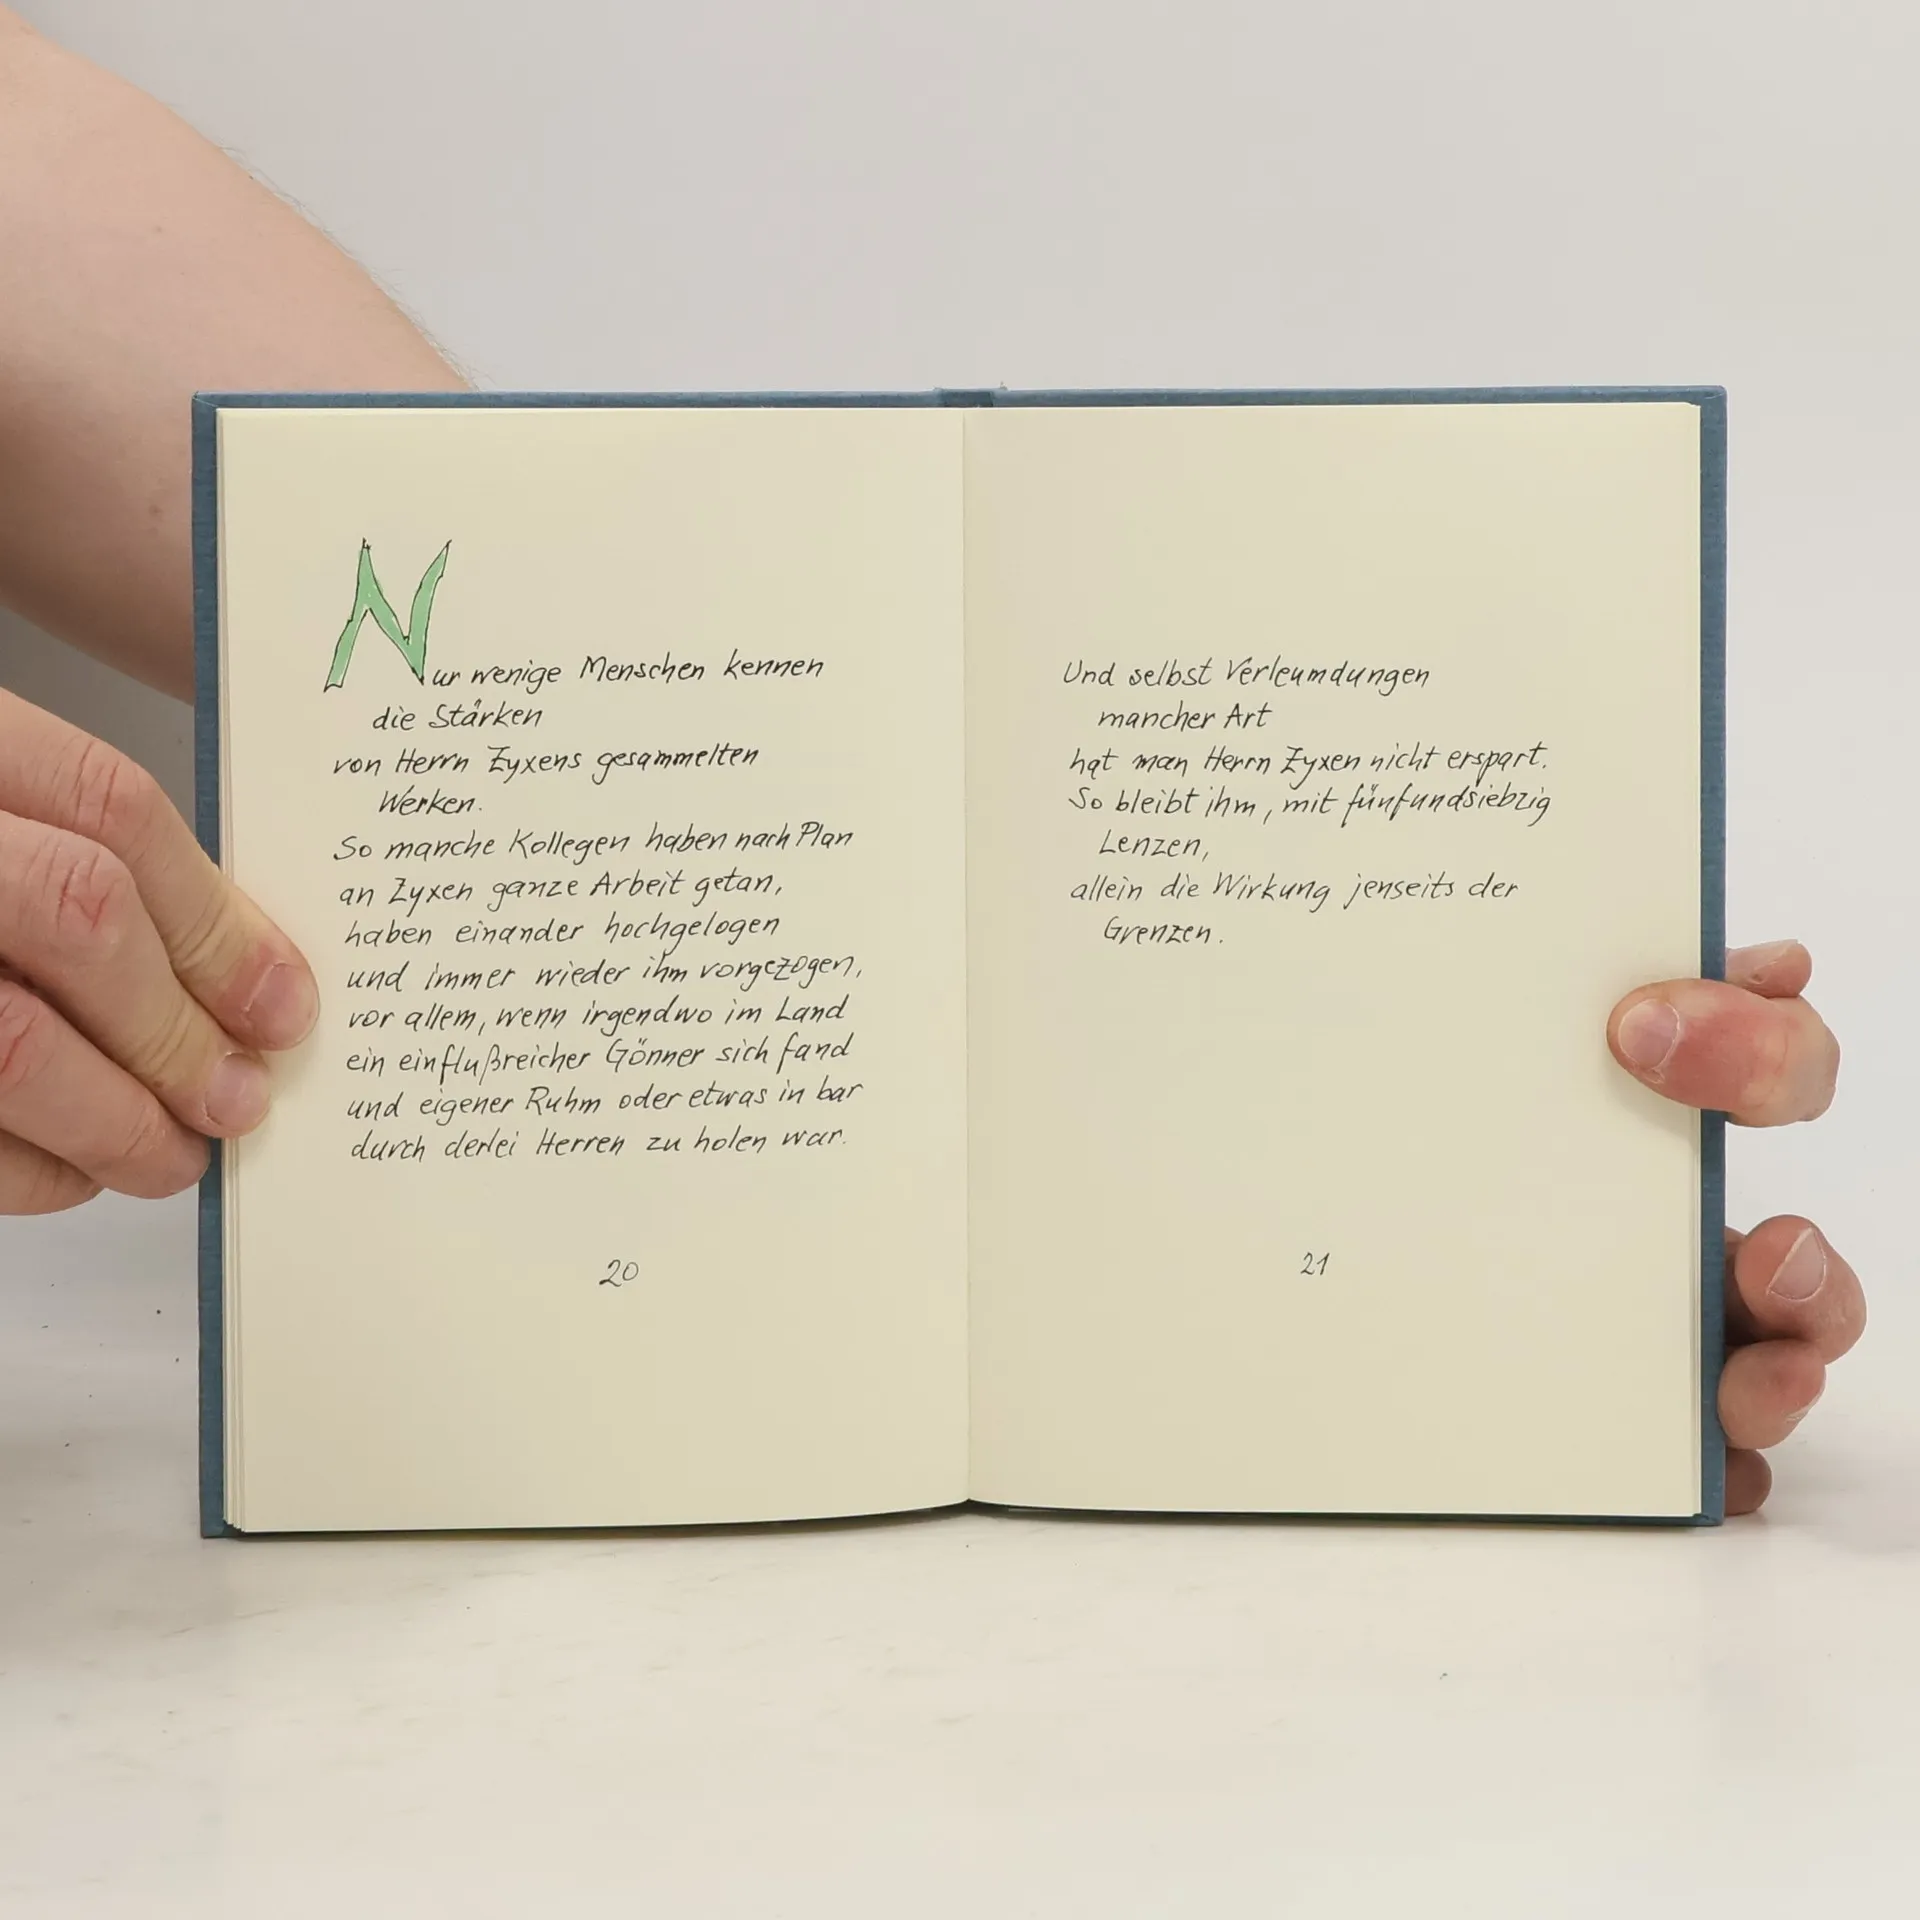 Nur wenige Menschen kennen
die Stärken
von Herrn Zyxens gesammelten
Werken.
So manche Kollegen haben nach Plan
an Zyxen ganze Arbeit getan,
haben einander hochgelogen
und immer wieder ihm vorgezogen,
vor allem, wenn irgendwo im Land
ein einflußreicher Gönner sich fand
und eigener Ruhm oder etwas in bar
durch derlei Herren zu holen war.
20
Und selbst Verleumdungen
mancher Art
hat man Herrn Zyxen nicht erspart.
So bleibt ihm, mit fünfundsiebzig
Lenzen,
allein die Wirkung jenseits der
Grenzen.
21